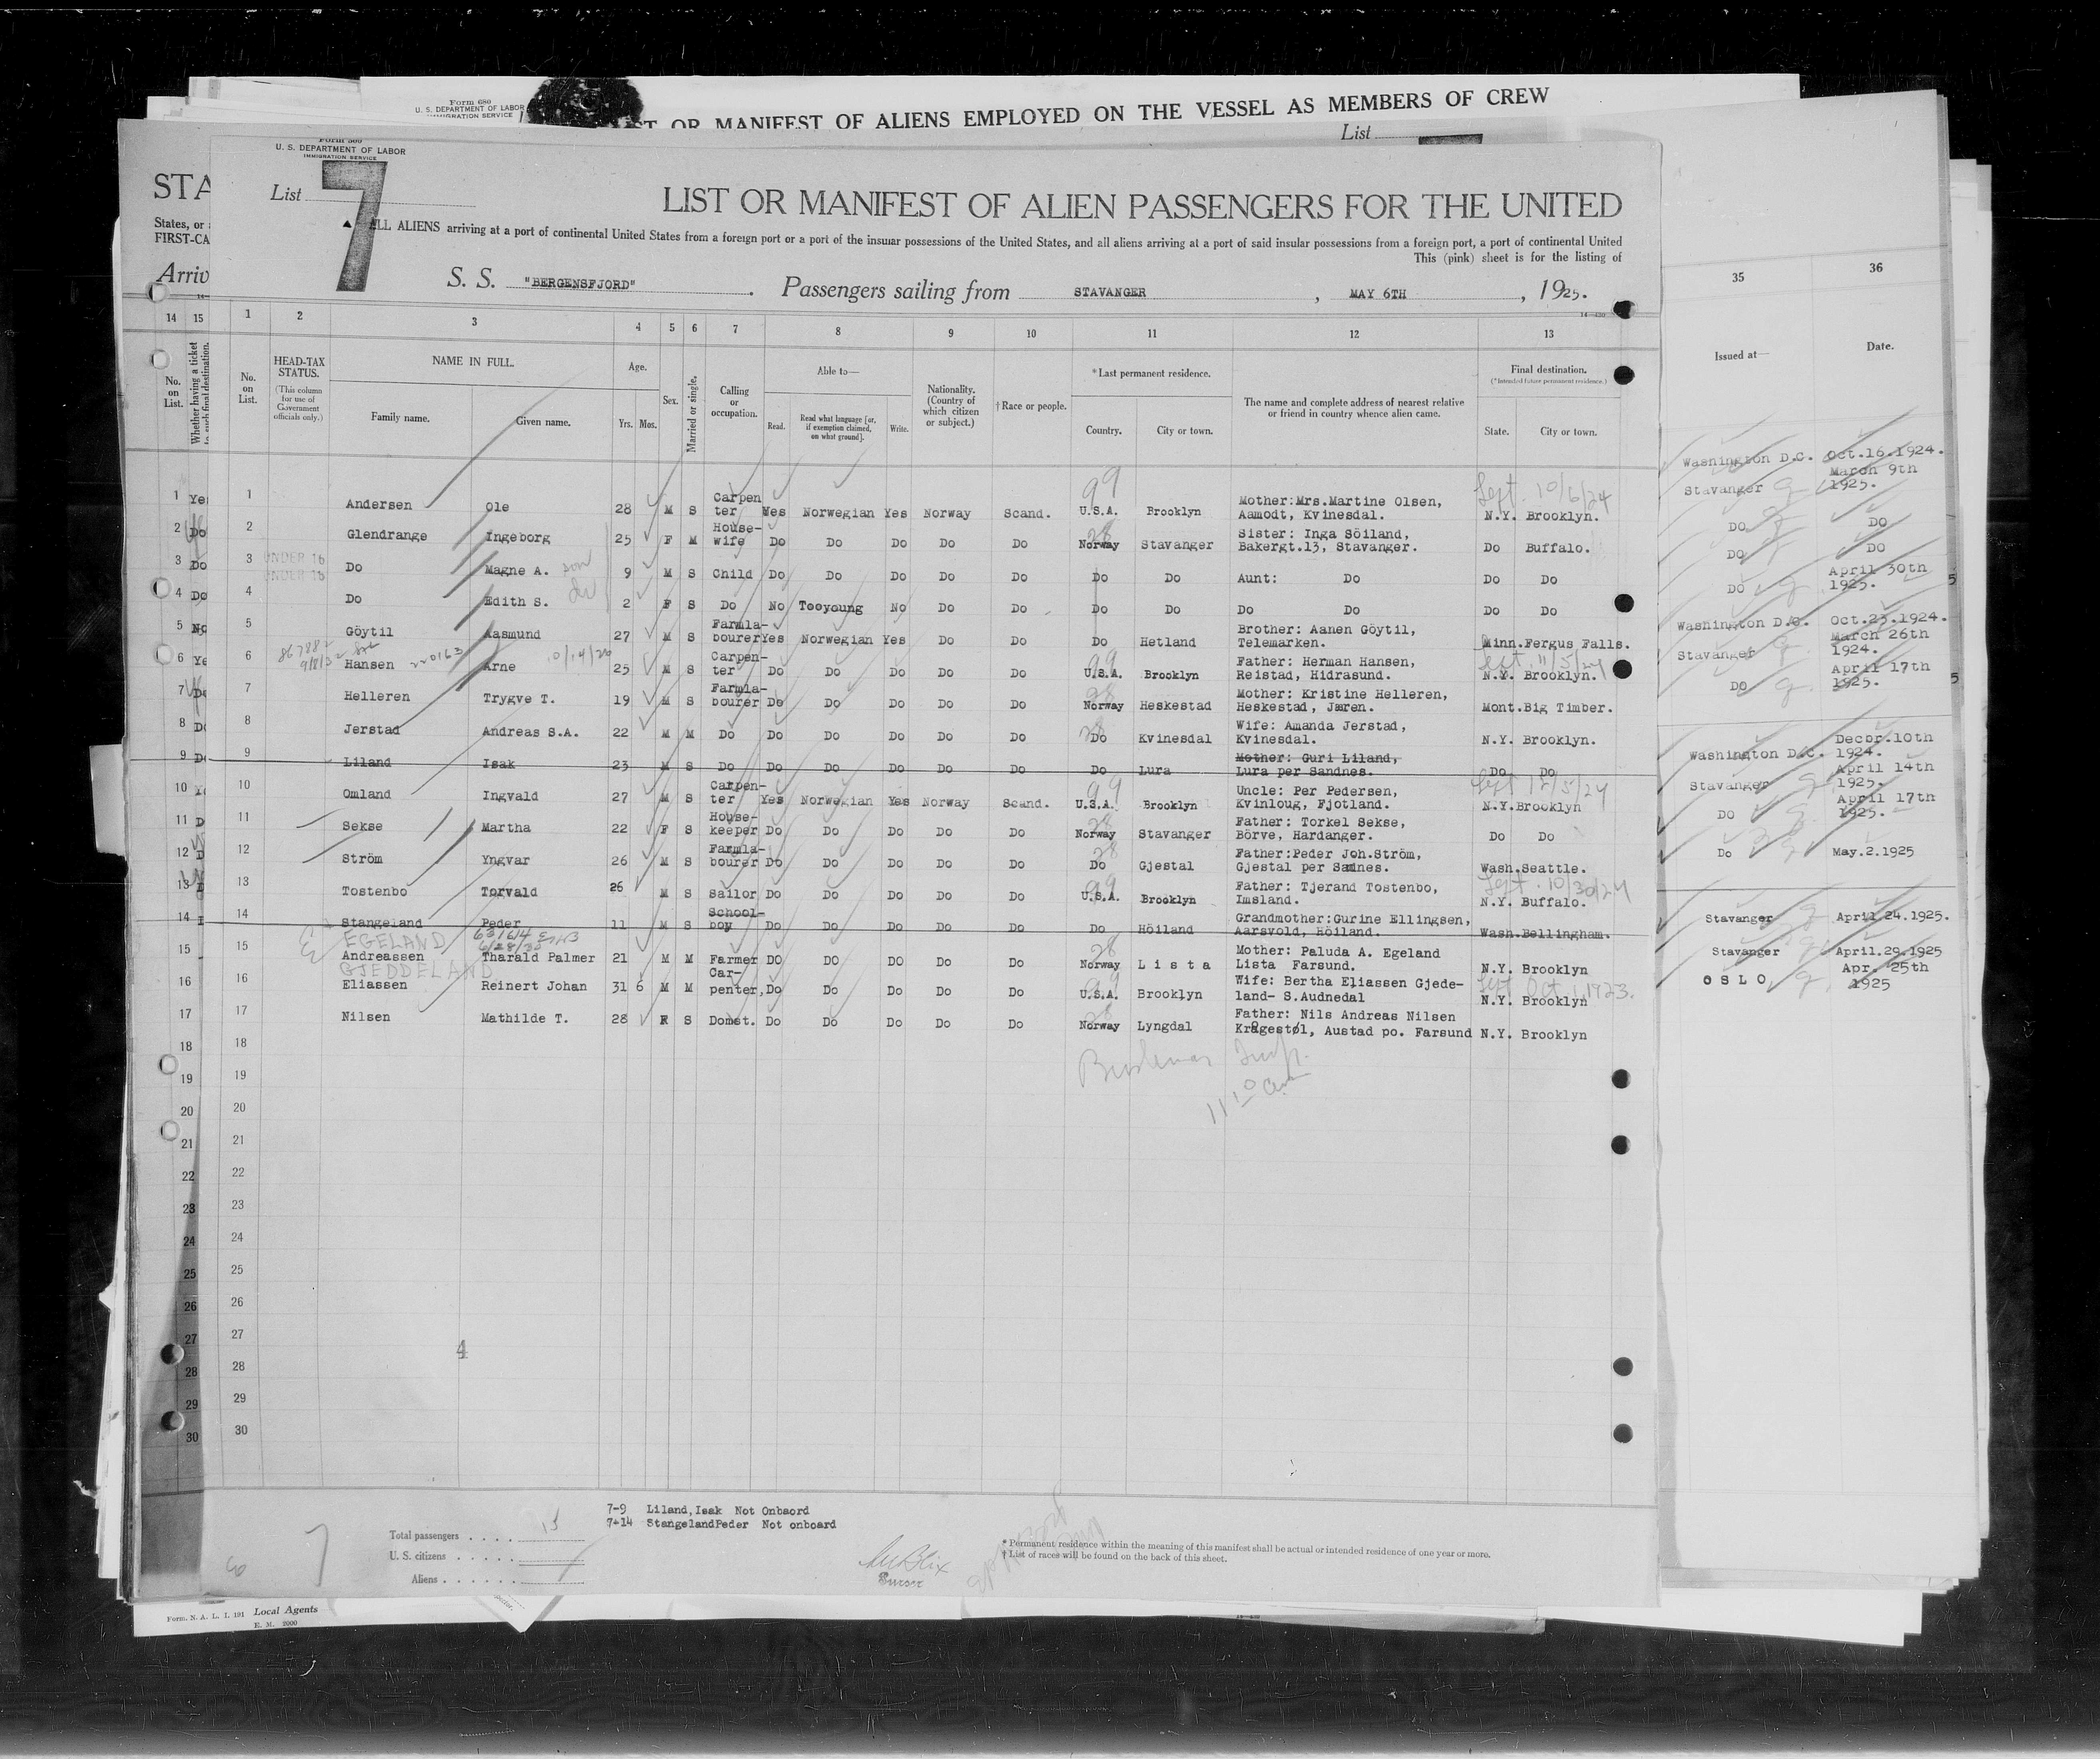 Form 680
U. S. DEPARTMENT OF LABOR
IMMIGRATION SERVICE
OR MANIFEST OF ALIENS EMPLOYED ON THE VESSEL AS MEMBERS OF CREW
List
STA
States, or
FIRST-CA
Arriv
U. S. DEPARTMENT OF LABOR
IMMIGRATION SERVICE
List 7
LIST OR MANIFEST OF ALIEN PASSENGERS FOR THE UNITED
ALL ALIENS arriving at a port of continental United States from a foreign port or a port of the insular possessions of the United States, and all aliens arriving at a port of said insular possessions from a foreign port, a port of continental United
This (pink) sheet is for the listing of
S. S. "BERGENSFJORD" Passengers sailing from STAVANGER, MAY 6TH, 1925.
14 15 1 2 3 4 5 6 7 8 9 10 11 12 13 35 36
No. on List.
Whether having a ticket to such final destination.
No. on List.
HEAD-TAX STATUS.
(This column for use of Government officials only.)
NAME IN FULL.
Family name. Given name.
Age.
Yrs. Mos.
Sex.
Married or single.
Calling or occupation.
Able to—
Read. Read what language [or, if exemption claimed, on what ground]. Write.
Nationality. (Country of which citizen or subject.)
†Race or people.
*Last permanent residence.
Country. City or town.
The name and complete address of nearest relative or friend in country whence alien came.
Final destination.
(*Intended future permanent residence.)
State. City or town.
Issued at— Date.
1 Andersen Ole 28 M S Carpenter Yes Norwegian Yes Norway Scand. 99 U.S.A. Brooklyn Mother:Mrs.Martine Olsen, Aamodt, Kvinesdal. 10/6/24 N.Y. Brooklyn. Washington D.C. Oct.16.1924.
2 Glendrange Ingeborg 25 F M House-wife Do Do Do Do Do 28 Norway Stavanger Sister: Inga Söiland, Bakergt.13, Stavanger. Do Buffalo. Stavanger March 9th 1925.
3 UNDER 16 Do Magne A. son 9 M S Child Do Do Do Do Do Do Do Aunt: Do Do Do DO DO
4 UNDER 16 Do Edith S. 2 F S Do No Tooyoung No Do Do Do Do Do Do Do Do DO DO
5 Göytil Aasmund 27 M S Farmla-bourer Yes Norwegian Yes Do Do Do Hetland Brother: Aanen Göytil, Telemarken. Minn.Fergus Falls. DO April 30th 1925.
6 Hansen 220163 Arne 10/14/26 25 M S Carpen-ter Do Do Do Do Do 99 U.S.A. Brooklyn Father: Herman Hansen, Reistad, Hidrasund. 11/5/24 N.Y. Brooklyn. Washington D.C. Oct.23.1924.
7 Helleren Trygve T. 19 M S Farmla-bourer Do Do Do Do Do 28 Norway Heskestad Mother: Kristine Helleren, Heskestad, Jæren. Mont.Big Timber. Stavanger March 26th 1924.
8 Jerstad Andreas S.A. 22 M M Do Do Do Do Do Do 28 Do Kvinesdal Wife: Amanda Jerstad, Kvinesdal. N.Y. Brooklyn. DO April 17th 1925.
9 Liland Isak 23 M S Do Do Do Do Do Do Do Lura Mother: Guri Liland, Lura per Sandnes. Do Do
10 Omland Ingvald 27 M S Carpen-ter Yes Norwegian Yes Norway Scand. 99 U.S.A. Brooklyn Uncle: Per Pedersen, Kvinloug, Fjotland. 12/5/24 N.Y.Brooklyn Washington D.C. Decbr.10th 1924.
11 Sekse Martha 22 F S House-keeper Do Do Do Do Do 28 Norway Stavanger Father: Torkel Sekse, Börve, Hardanger. Do Do Stavanger April 14th 1925.
12 Ström Yngvar 26 M S Farmla-bourer Do Do Do Do Do 28 Do Gjestal Father:Peder Joh.Ström, Gjestal per Sadnes. Wash.Seattle. DO April 17th 1925.
13 Tostenbo Torvald 26 M S Sailor Do Do Do Do Do 99 U.S.A. Brooklyn Father: Tjerand Tostenbo, Imsland. 10/30/24 N.Y. Buffalo. Do May.2.1925
14 Stangeland Peder 11 M S School-boy Do Do Do Do Do Do Höiland Grandmother:Gurine Ellingsen, Aarsvold, Höiland. Wash.Bellingham.
EGELAND 6/28/30
15 Andreassen Tharald Palmer 21 M M Farmer DO DO DO Do Do 28 Norway Lista Mother: Paluda A. Egeland Lista Farsund. N.Y. Brooklyn Stavanger April.24.1925.
GJEDDELAND
16 Eliassen Reinert Johan 31 6 M M Car-penter, Do Do Do Do Do 99 U.S.A. Brooklyn Wife: Bertha Eliassen Gjede-land- S.Audnedal Oct. 1, 1923. N.Y. Brooklyn Stavanger April.29.1925
17 Nilsen Mathilde T. 28 F S Domst. Do Do Do Do Do 28 Norway Lyngdal Father: Nils Andreas Nilsen Krågestøl, Austad po. Farsund N.Y. Brooklyn OSLO Apr. 25th 1925
18
19
20
21
22
23
24
25
26
27
28
29
30
4
7-9 Liland,Isak Not Onbaord
7-14 StangelandPeder Not onboard
Total passengers 15
U. S. citizens
Aliens
Purser
* Permanent residence within the meaning of this manifest shall be actual or intended residence of one year or more.
† List of races will be found on the back of this sheet.
Form. N. A. L. I. 191 Local Agents
E. M. 2000